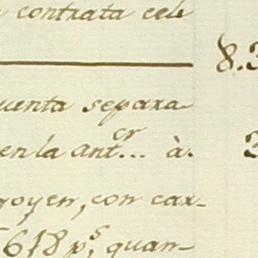 contrata cele
8.3
uenta separa
en la ant.er... à.
goyen, con car-
618 p.s, quan-